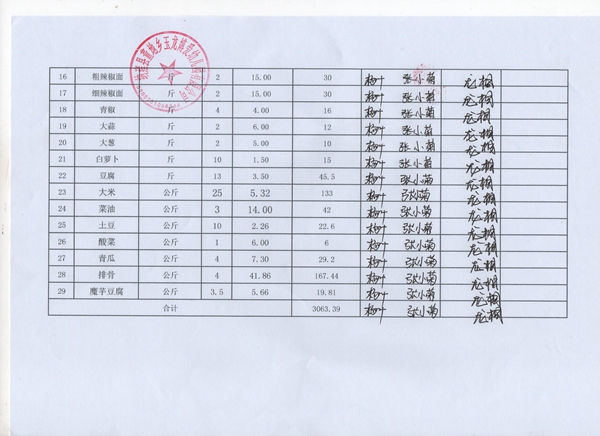 16 粗辣椒面 斤 2 15.00 30 张小菊 龙棚
17 细辣椒面 斤 2 15.00 30 张小菊 龙棚
18 青椒 斤 4 4.00 16 张小菊 龙棚
19 大蒜 斤 2 6.00 12 张小菊 龙棚
20 大葱 斤 2 5.00 10 张小菊 龙棚
21 白萝卜 斤 10 1.50 15 张小菊 龙棚
22 豆腐 斤 13 3.50 45.5 张小菊 龙棚
23 大米 公斤 25 5.32 133 张小菊 龙棚
24 菜油 公斤 3 14.00 42 张小菊 龙棚
25 土豆 公斤 10 2.26 22.6 张小菊 龙棚
26 酸菜 公斤 1 6.00 6 张小菊 龙棚
27 青瓜 公斤 4 7.30 29.2 张小菊 龙棚
28 排骨 公斤 4 41.86 167.44 张小菊 龙棚
29 魔芋豆腐 公斤 3.5 5.66 19.81 张小菊 龙棚
合计 3063.39 张小菊 龙棚